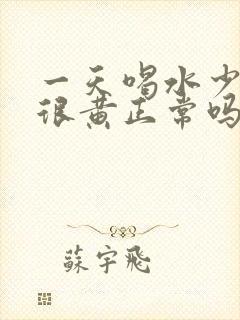 一天喝水少
很黄正常吗
蘇宇飛